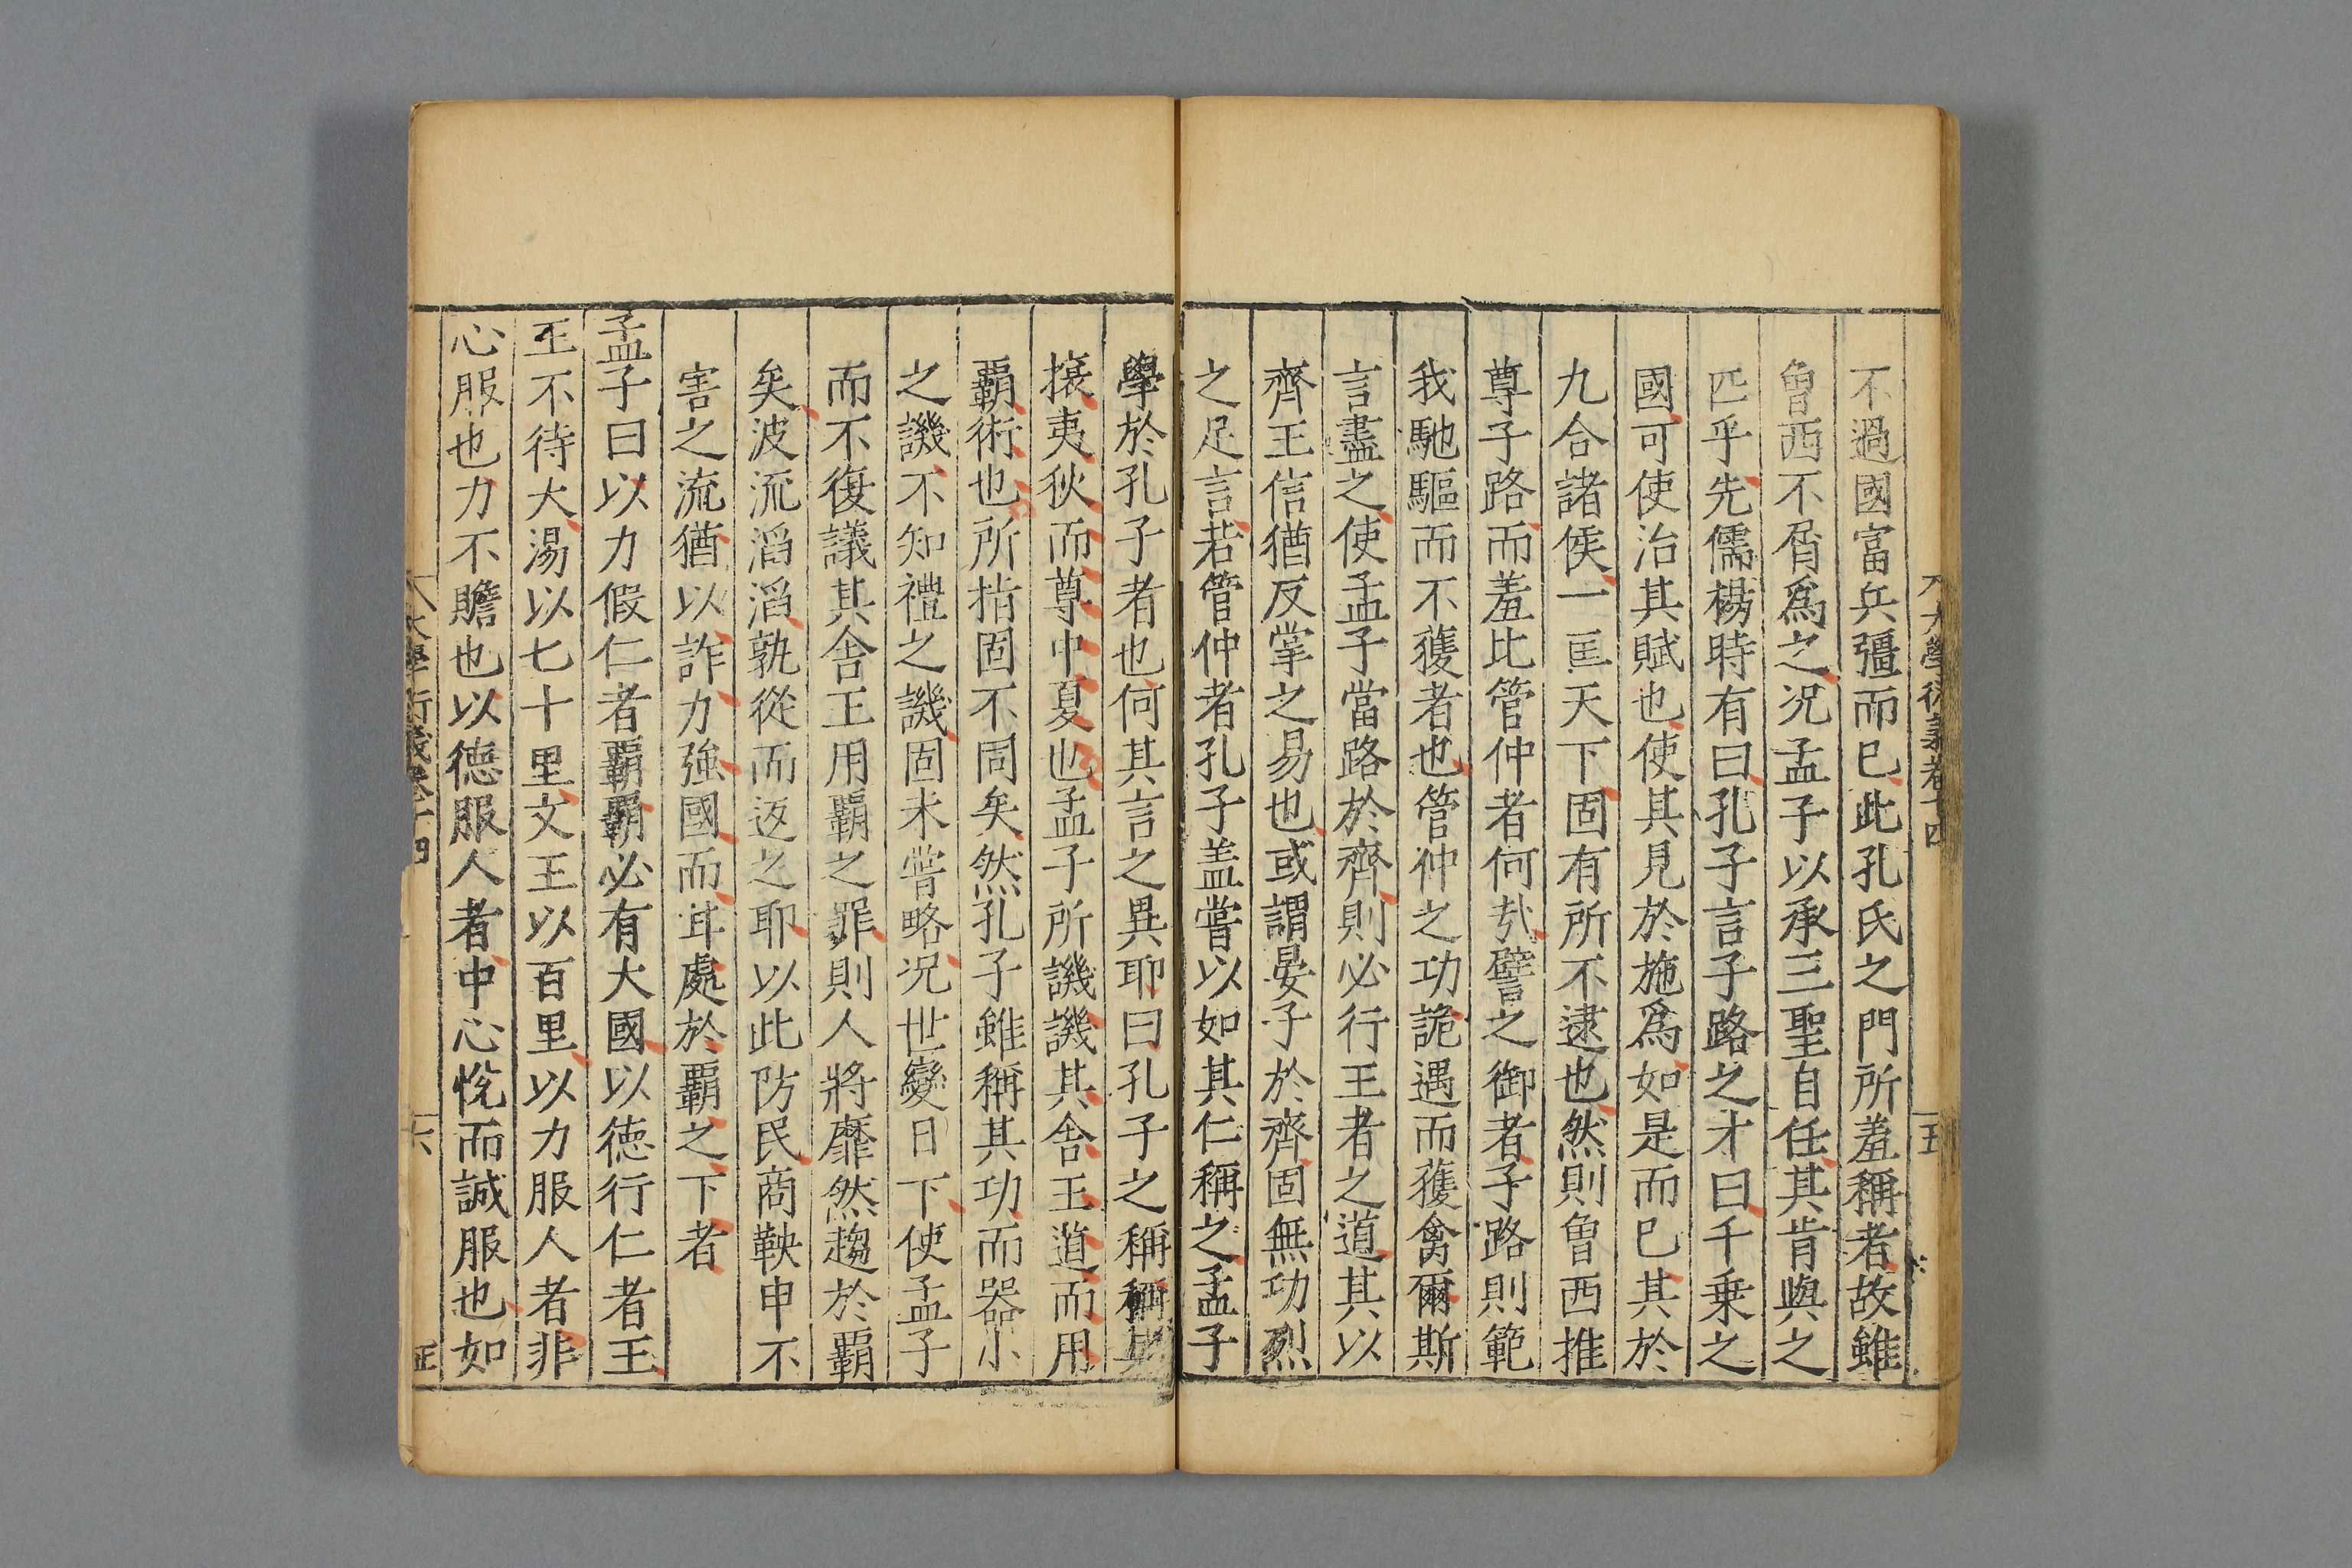 大學衍義卷十四
五
不過國富兵彊而已此孔氏之門所羞稱者故雖
魯西不屑爲之况孟子以承三聖自任其肯與之
匹乎先儒楊時有曰孔子言子路之才曰千乗之
國可使治其賦也使其見於施爲如是而已其於
九合諸侯一匡天下固有所不逮也然則魯西推
尊子路而羞比管仲者何㢤譬之御者子路則範
我馳驅而不獲者也管仲之功詭遇而獲禽爾斯
言盡之使孟子當路於齊則必行王者之道其以
齊王信猶反掌之易也或謂晏子於齊固無功烈
之足言若管仲者孔子盖嘗以如其仁稱之孟子
學於孔子者也何其言之異耶曰孔子之稱稱其
攘夷狄而尊中夏也孟子所譏譏其舍王道而用
覇術也所指固不同矣然孔子雖稱其功而器小
之譏不知禮之譏固未嘗略况世變日下使孟子
而不復議其舍王用覇之罪則人將靡然趨於覇
矣波流滔滔孰從而返之耶以此防民商鞅申不
害之流猶以詐力強國而耳處於覇之下者
孟子曰以力假仁者覇覇必有大國以德行仁者王
王不待大湯以七十里文王以百里以力服人者非
心服也力不贍也以德服人者中心悅而誠服也如
大學衍義卷十四
六